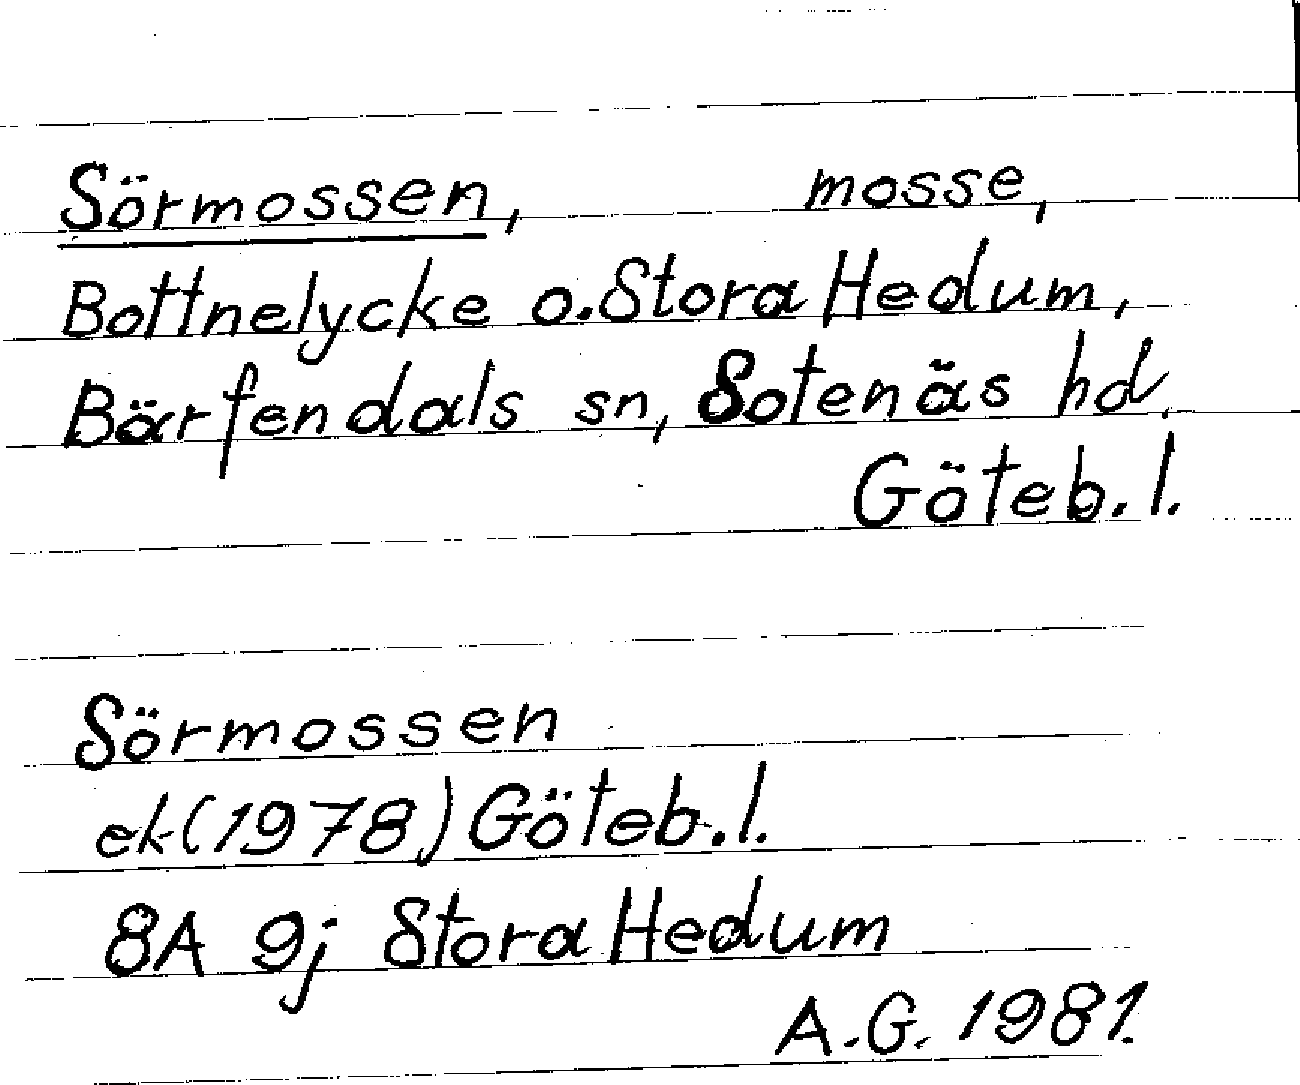 Sörmossen, mosse,
Bottnelycke o. Stora Hedum,
Bärfendals sn, Sotenäs hd,
Göteb. l.
Sörmossen
ek (1978) Göteb. l.
8A 9j Stora Hedum
A.G. 1981.